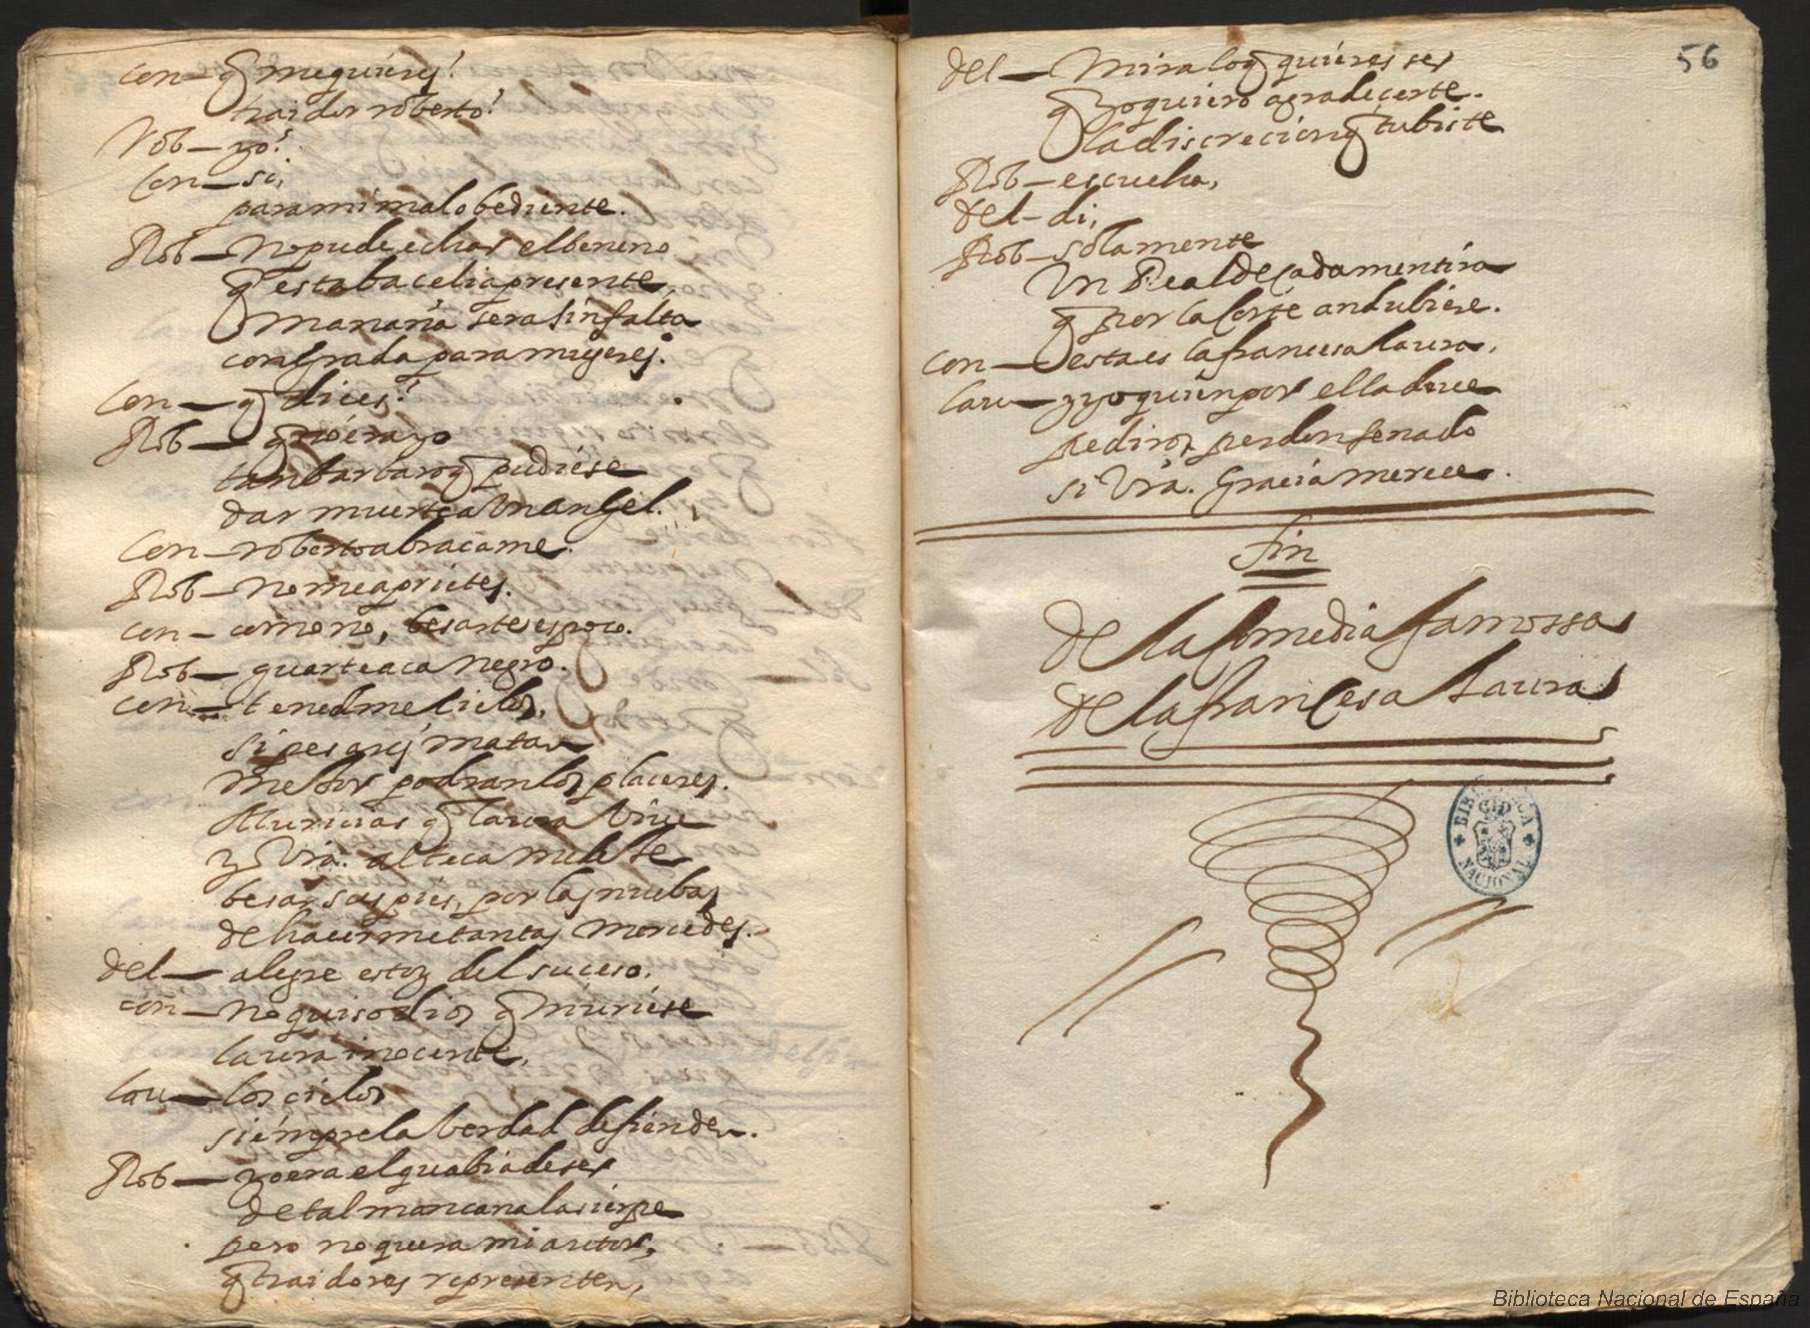 con — q̃ me quieres?
traidor roberto?
Rob — yo?
Con — si,
para mi mal obediente.
Rob — No pude echar el beneno
q̃ estaba celia presente,
mañana sera sin falta
con para mugeres.
Con — q̃ dices?
Rob — q̃ no era yo
tan barbaro q̃ pudiese
dar muerte a Un angel.
Con — roberto abraçame.
Rob — no me aprietes.
con — como no, besarte es poco.
Rob — guarte aca negro.
con — tenedme cielos,
si pesares matan
mejor podran los placeres.
Albricias q̃ laura Vive
y Vra. alteça me de
besar sus pies, por las nuebas
de hacerme tantas mercedes.
del — alegre estoy del suceso.
con — no quiso dios q̃ muriese
laura inocente,
lau — los cielos
siempre la berdad defienden.
Rob — yo era el que abia de ser
de tal mançana la sierpe
pero no quiera mi autor,
q̃ traidores represente,
56
del — Mira lo q̃ quieres ser
q̃ yo quiero agradecerte.
la discrecion q̃ tubiste
Rob — escucha,
del — di,
Rob — solamente
Un Real de Cada mentira
q̃ por la Corte andubiese.
con — esta es la françesa laura,
lau — y yo quien por ella debe
pediros perdon senado
si Vra. Gracia merece.
fin
de la Comedia famossa
de la franÇesa laura
BIBLIOTECA NACIONAL
Biblioteca Nacional de España